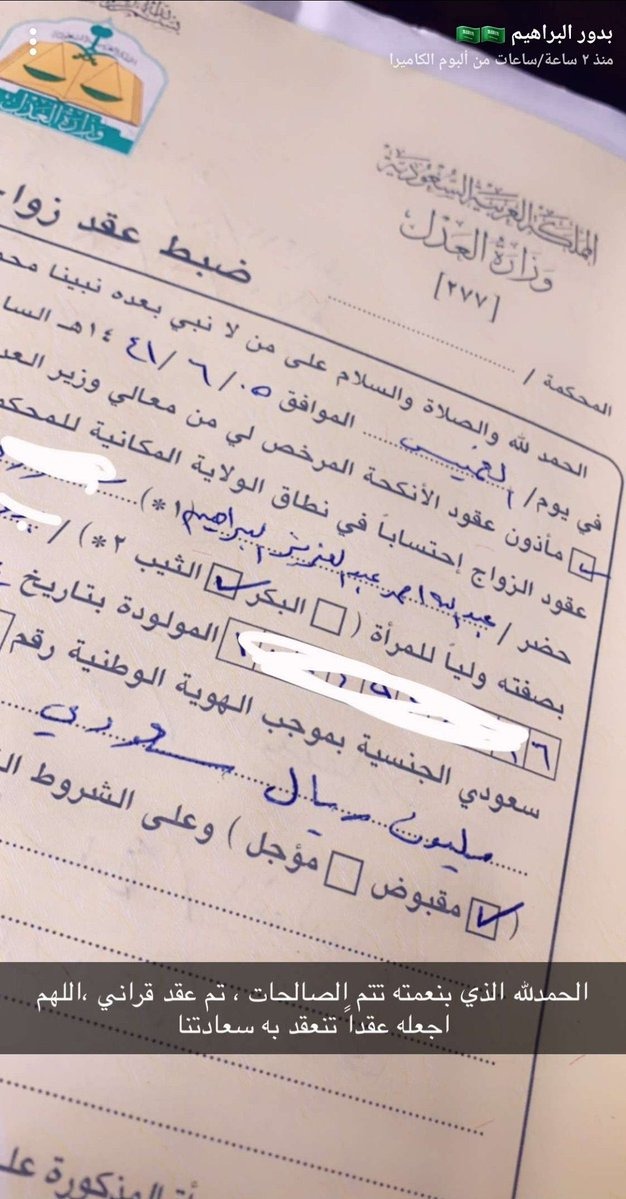 بدور البراهيم 🇸🇦🇸🇦
منذ ٢ ساعة/ساعات من ألبوم الكاميرا
وزارة العدل
المملكة العربية السعودية
وزارة العدل
[٢٧٧]
ضبط عقد زواج
المحكمة /
الحمد لله والصلاة والسلام على من لا نبي بعده نبينا
في يوم/ الخميس الموافق ٠٥/ ٦ /١٤٤١هـ
مأذون عقود الأنكحة المرخص لي من معالي وزير
عقود الزواج إحتساباً في نطاق الولاية المكانية
حضر / عبدالله احمد عبدالعزيز البراهيم
بصفته ولياً للمرأة ( البكر الثيب ٢*) /
المولودة بتاريخ
سعودي الجنسية بموجب الهوية الوطنية رقم
مليون ريال سعودي
( مقبوض مؤجل ) وعلى الشروط
الحمدلله الذي بنعمته تتم الصالحات ، تم عقد قراني ،اللهم
اجعله عقداً تنعقد به سعادتنا
المذكورة